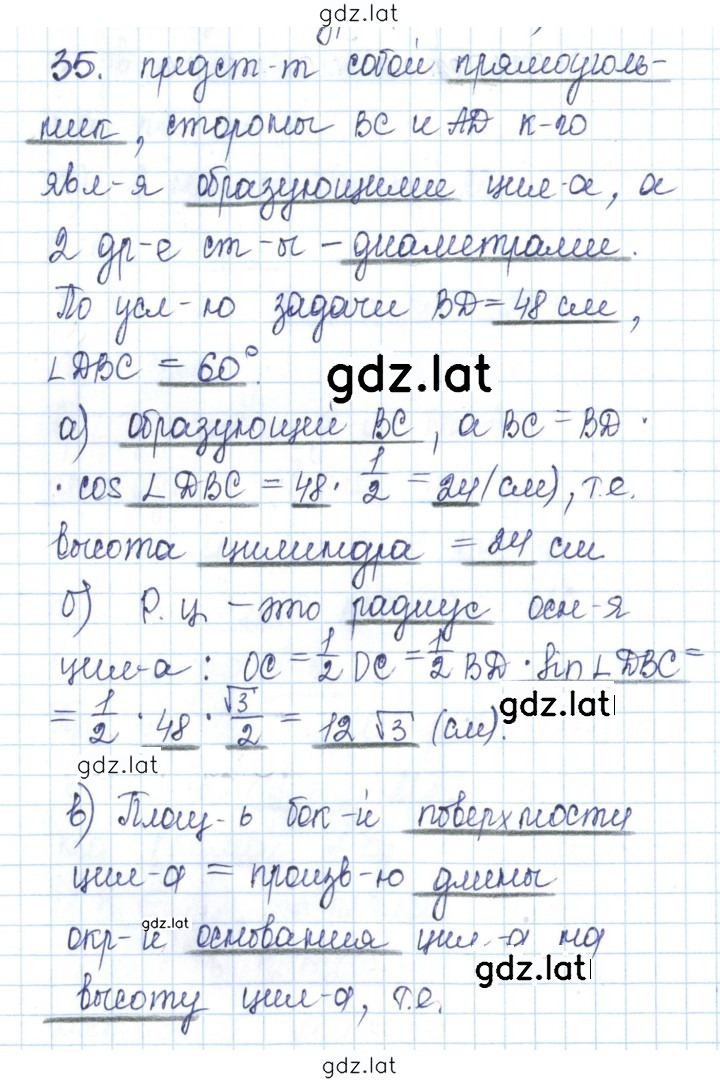 gdz.lat
35. предст-т собой прямоуголь-
ник, стороны BC и AD к-го
явл-я образующими цил-а, а
2 др-е ст-ы – диаметрами.
По усл-ю задачи BD = 48 см,
∠DBC = 60°.
gdz.lat
а) образующей BC, а BC = BD ·
· cos ∠DBC = 48 · 1/2 = 24 (см), т.е.
высота цилиндра = 24 см
б) Р. ц. – это радиус осн-я
цил-а: OC = 1/2 DC = 1/2 BD · sin ∠DBC =
gdz.lat
= 1/2 · 48 · √3/2 = 12 √3 (см).
gdz.lat
в) Площ-ь бок-й поверхности
цил-а = произв-ю длины
gdz.lat
окр-и основания цил-а на
gdz.lat
высоту цил-а, т.е.
gdz.lat